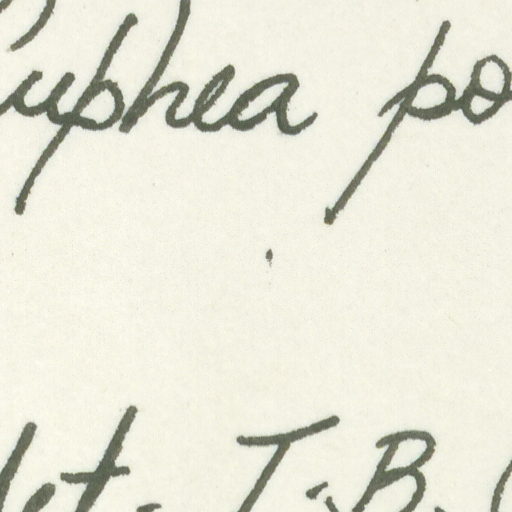 Cuphea po
det. T. B.